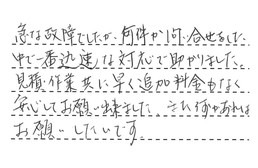 急な故障でしたが、何件か問い合せをした
中で一番迅速な対応で助かりました。
見積・作業共に早く追加料金もなく
安心してお願い出来ました。また何かあれば
お願いしたいです。